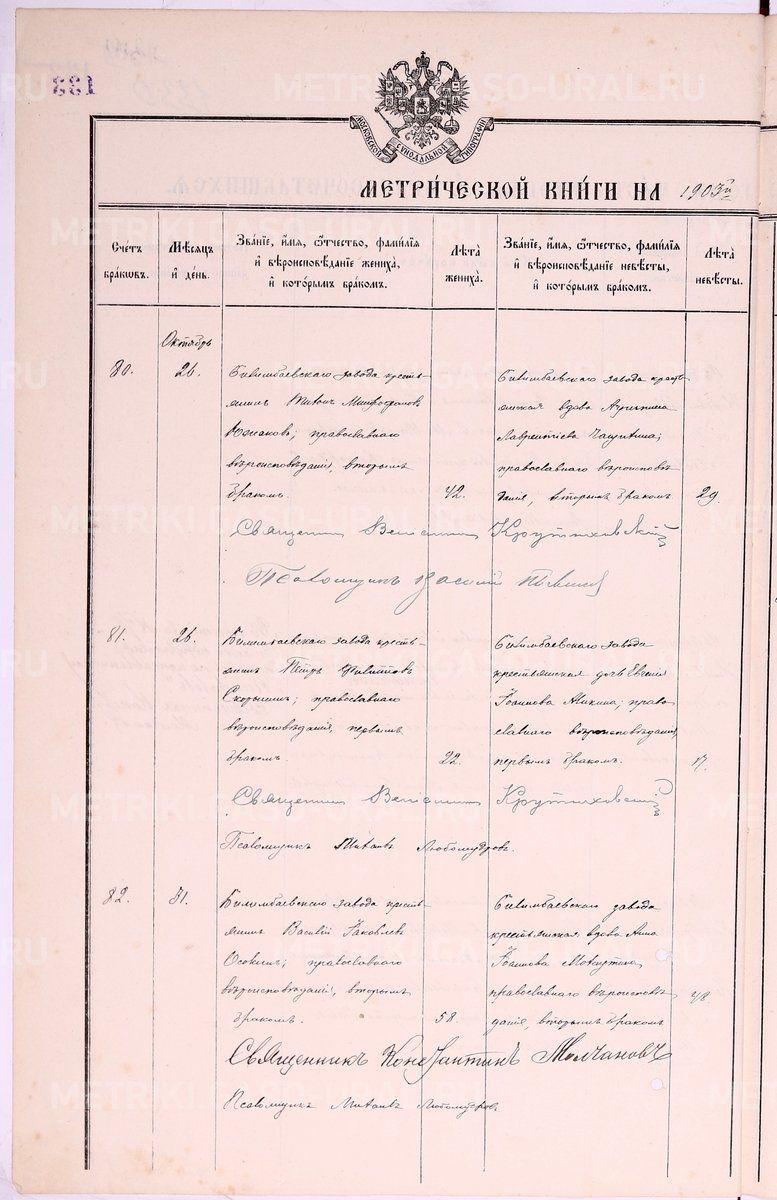 133
МОСКОВСКОЙ СѴНОДАЛЬНОЙ ТИПОГРАФІИ
МЕТРИ́ЧЕСКОЙ КНИ́ГИ НА 1903й
Сче́тъ бра́кѡвъ.
Мѣ́сѧцъ и҆ де́нь.
Зва́нїе, и҆́мѧ, ѻ҆́тчество, фами́лїѧ и҆ вѣроисповѣ́данїе жениха̀, и҆ кото́рымъ бра́комъ.
Лѣ́та жениха̀.
Зва́нїе, и҆́мѧ, ѻ҆́тчество, фами́лїѧ и҆ вѣроисповѣ́данїе невѣ́сты, и҆ кото́рымъ бра́комъ.
Лѣ́та невѣ́сты.
Октябрь
80.
26.
Билимбаевскаго завода кресть-
янинъ Митрофановъ
православнаго
вѣроисповѣданія, вторымъ
бракомъ.
42.
Билимбаевскаго завода кресть-
янская вдова Агрипина
Лаврентіева
православнаго вѣроисповѣ-
данія, вторымъ бракомъ
29.
Священникъ Веніаминъ Крутиховскій
Псаломщикъ
81.
26.
Билимбаевскаго завода кресть-
янинъ Петръ Филиповъ
Скорынинъ; православнаго
вѣроисповѣданія, первымъ
бракомъ.
22.
Билимбаевскаго завода
крестьянская дочь Евгенія
Іоаннова Аликина; право-
славнаго вѣроисповѣданія,
первымъ бракомъ.
17.
Священникъ Веніаминъ Крутиховскій
Псаломщикъ Михаилъ Любомудровъ.
82.
31.
Билимбаевскаго завода кресть-
янинъ Василій Іаковлевъ
Осокинъ; православнаго
вѣроисповѣданія, вторымъ
бракомъ.
58.
Билимбаевскаго завода
крестьянская вдова Анна
Іоаннова
православнаго вѣроисповѣ-
данія, вторымъ бракомъ
48
Священникъ Константинъ Молчановъ
Псаломщикъ Михаилъ Любомудровъ
METRIKI.GASO-URAL.RU